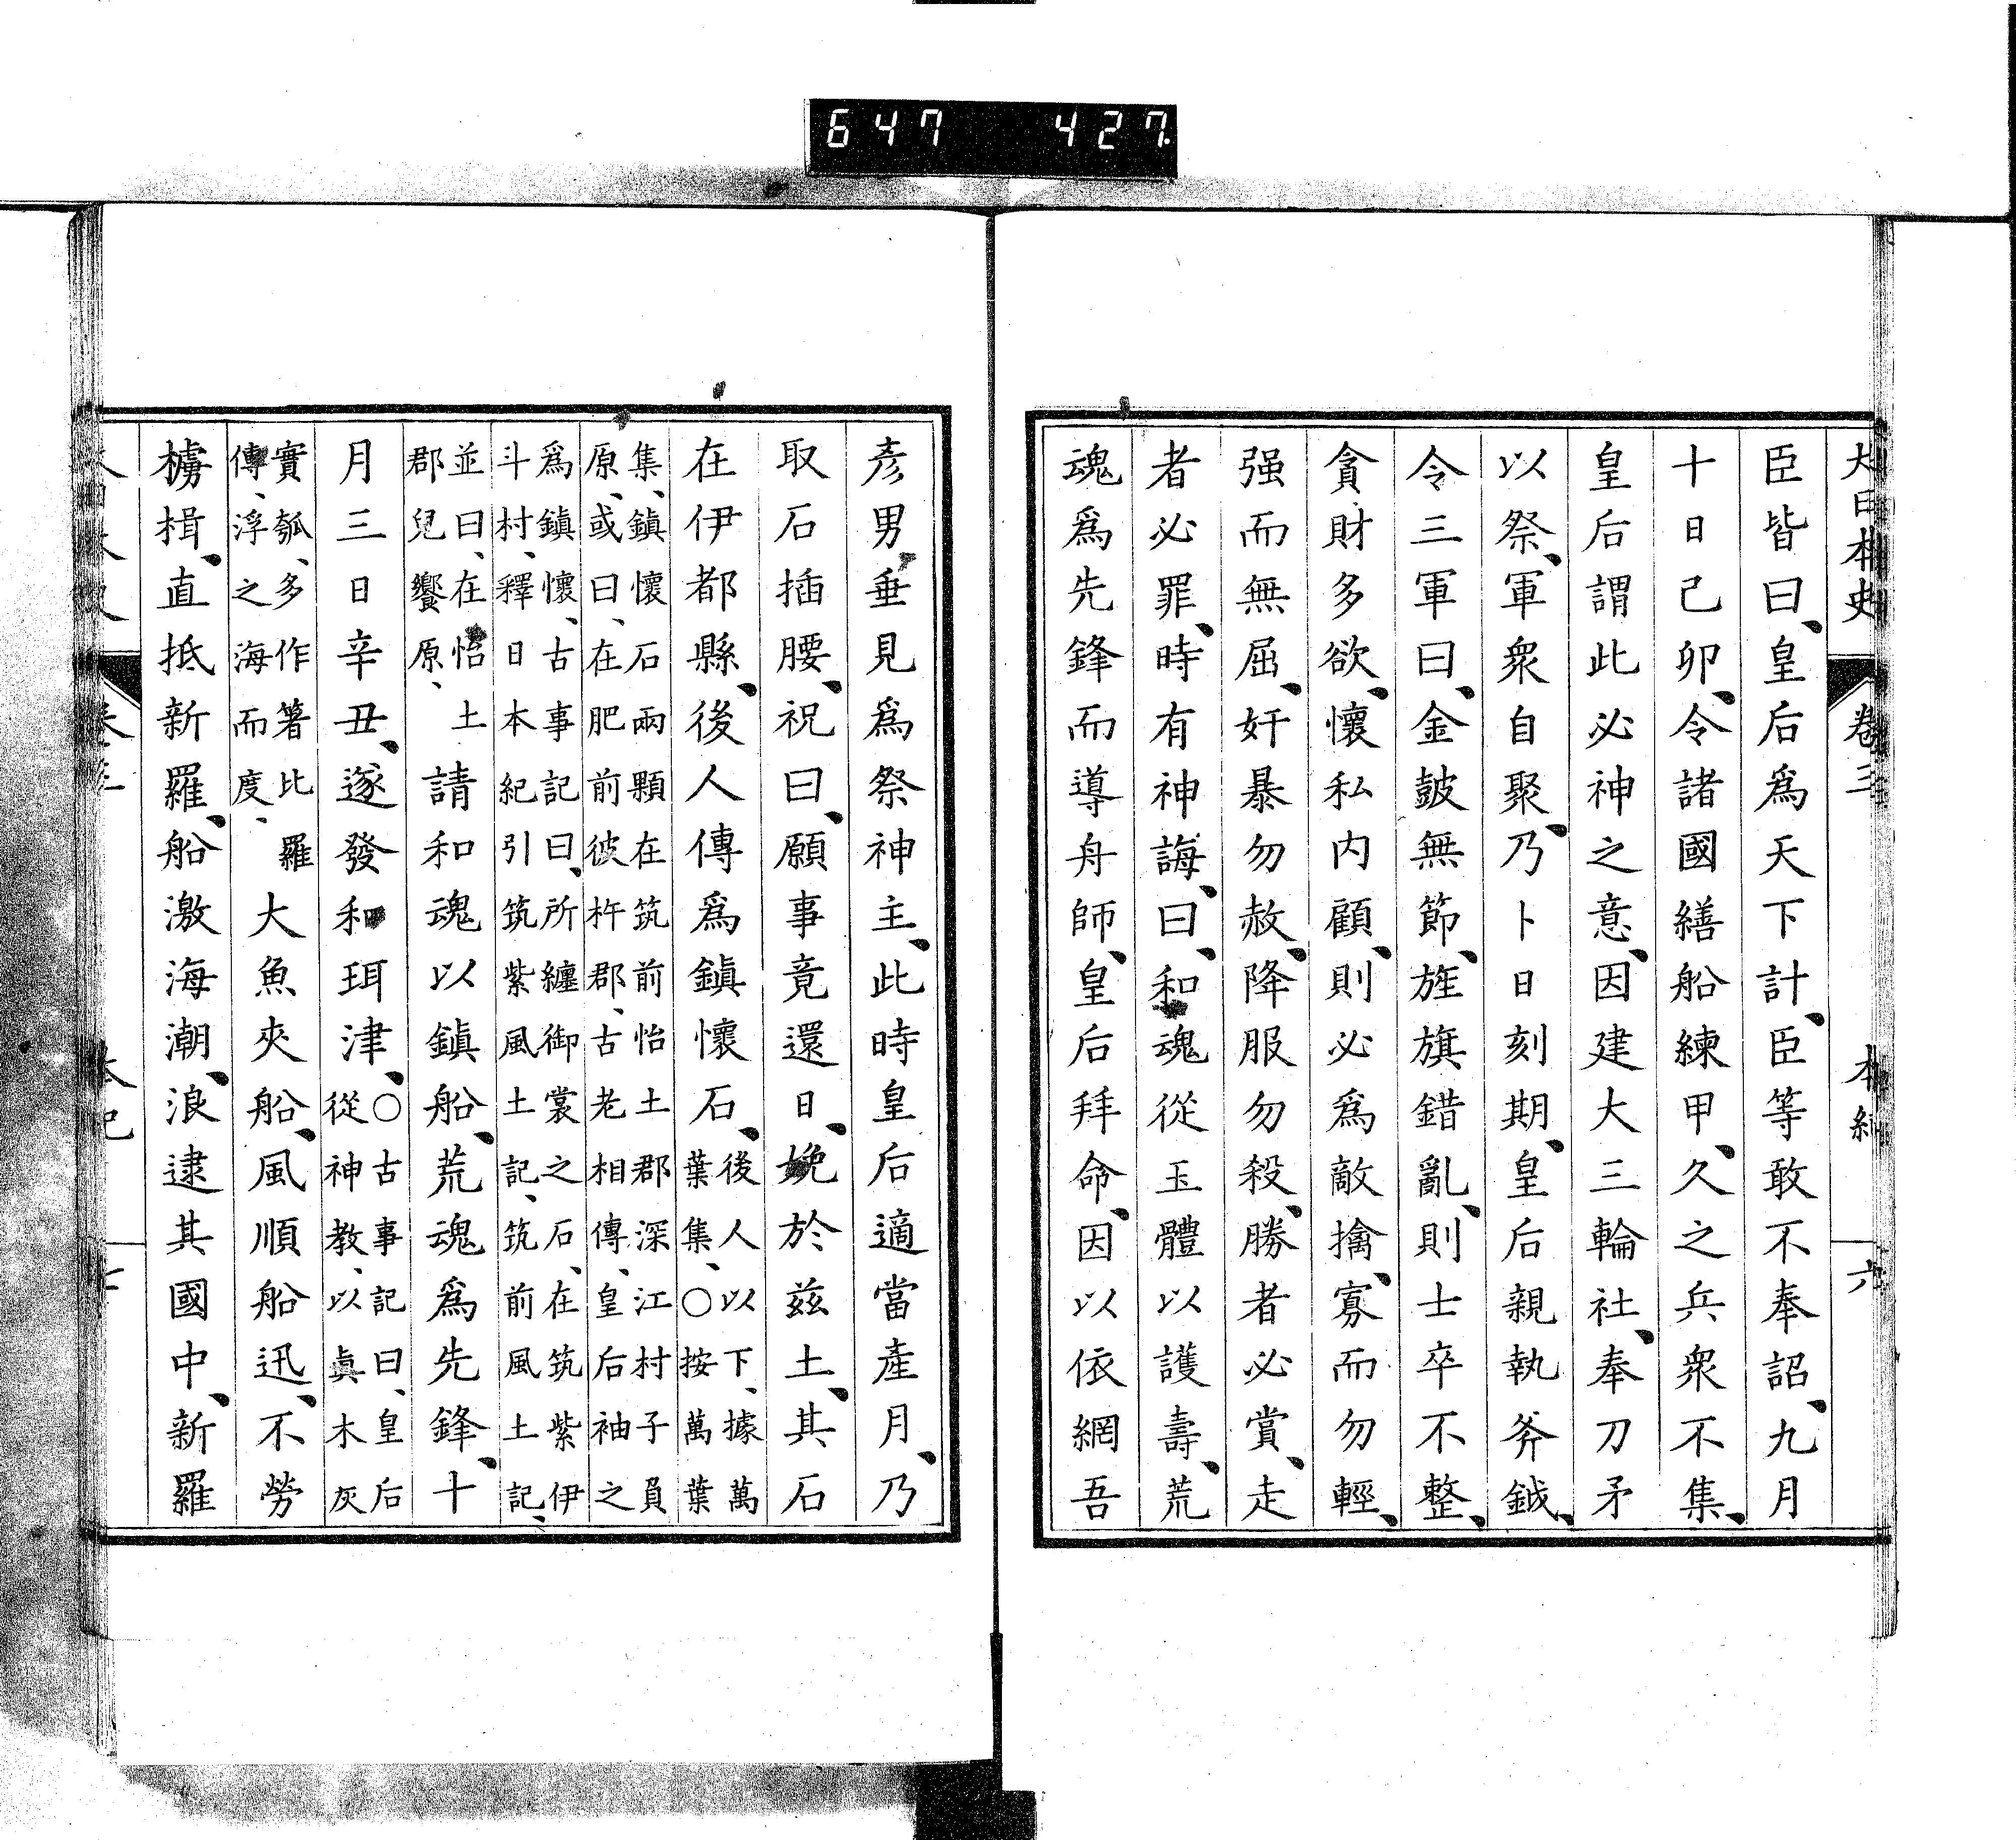 647 427
大日本史 卷三 本紀 六
臣皆曰、皇后爲天下計、臣等敢不奉詔、九月
十日己卯、令諸國繕船練甲、久之兵衆不集、
皇后謂此必神之意、因建大三輪社、奉刀矛
以祭、軍衆自聚、乃卜日刻期、皇后親執斧鉞、
令三軍曰、金鼓無節、旌旗錯亂、則士卒不整、
貪財多欲、懷私内顧、則必爲敵擒、寡而勿輕、
强而無屈、奸暴勿赦、降服勿殺、勝者必賞、走
者必罪、時有神誨、曰、和魂從玉體以護壽、荒
魂爲先鋒而導舟師、皇后拜命、因以依網吾
彦男垂見爲祭神主、此時皇后適當產月、乃
取石插腰、祝曰、願事竟還日、娩於茲土、其石
在伊都縣、後人傳爲鎭懷石、後人以下、據萬
葉集、○按萬葉
集、鎭懷石兩顆在筑前怡土郡深江村子負
原、或曰、在肥前彼杵郡、古老相傳、皇后袖之
爲鎭懷、古事記曰、所纏御裳之石、在筑紫伊
斗村、釋日本紀引筑紫風土記、筑前風土記、
並曰、在怡土
郡兒饗原、請和魂以鎭船、荒魂爲先鋒、十
月三日辛丑、遂發和珥津、○古事記曰、皇后
從神教、以眞木灰
實瓠、多作箸比羅
傳、浮之海而度、大魚夾船、風順船迅、不勞
櫓楫、直抵新羅、船激海潮、浪逮其國中、新羅